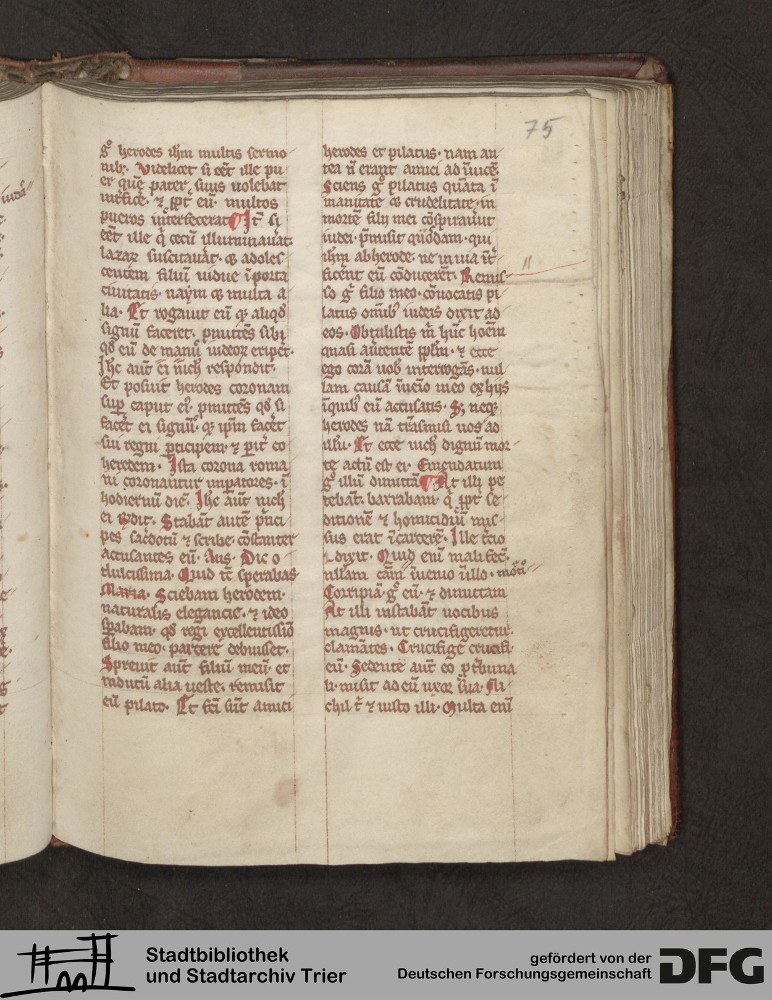 75
gͦ herodes ihm multis sermo
nibꝰ. Videlicet si eēt ille pu
er quē pater suus uolebat
int̄ficē. ⁊ ꝓpt̄ eū multos
pueros int̄erfecerat ¶ Jt̄ si
eēt ille q̄ cecū illuminauat.
lazaꝝ suscitauat. ⁊ adoles
centem filiū uidue ī porta
ciuitatis naym ⁊ multa a
lia. Et rogauit eū ꝙ aliqd̄
signū faceret. ꝓmittēs sibi
qd̄ eū de manū iudeoꝝ eripet̄.
Jhc aut̄ ei nich̄ respondit.
Et posuit herodes coronam
suꝑ caput eiꝰ. ꝓmittēs qd̄ si
facēt ei signū. ꝙ ip̄m facēt
sui regni ꝑticipem. ⁊ ꝑit̄ co
heredem. Jsta corona roma
ni coronantur imꝑatores. ī
hodiernū diē. Jhc aūt nich
ei r̄ndit. Stabāt autē p̄nci
pes sac̄dotū ⁊ scribe. cōstanter
accusantes eū. Ans. Dic o
dulcissima. Quid tc̄ sperabas
Maria. Sciebam herodem.
naturalis elegancie. ⁊ ideo
sꝑabam. qd̄ regi excellentissīo
filio meo. parcere debuisset.
Spreuit aūt filiū meū. et
indutū alba ueste. remisit
eū pilato. Et fc̄i sūt amici
herodes et pilatus. nam an
tea n̄ erant amici ad īuicē.
Sciens gͦ pilatus quāta ī
manitate ⁊ crudelitate. in
mortē filij mei cōspirauūt
iudei. p̄misit quōdam. qui
ihm ab herode. ne in uia īt̄
ficerēt eū cōducerēt. Remis
so gͦ filio meo. cōuocatis pi
latus omībꝰ iudeis dixit ad
eos. Obtulistis m̄ hūc hoīem
quasi aūtentē ppl̄m. ⁊ ecce
ego corā uob̄ interrogās. nul
lam causā īuēio in eo ex hijs
ī quibꝰ eū accusatis. Sꝫ neqꝫ
herodes nā trāsmisi uos ad
illū. Et ecce nich̄ dignū mor
te actū est ei. Emendatum
gͦ illū dimittā ¶ At illi pe
tebāt. barrabam. q̄ ꝓpt̄ se
ditionē ⁊ homicidiū mis
sus erat ī carcerē. Jlle t̄cio
dixit. Quid enī mali fec̄.
nllām cām īuenio ī illo. mōti
Corripiā gͦ eū. ⁊ dimittam
At illi instabāt uocibus
magnis. ut crucifigeretur.
clamātes. Crucifige crucifi.
eū. Sedente aūt eo ꝓ t̄buna
li. misit ad eū uxor sua. Ni
chil t̄ ⁊ iusto illi. Multa enī
Stadtbibliothek
und Stadtarchiv Trier
gefördert von der
Deutschen Forschungsgemeinschaft
DFG